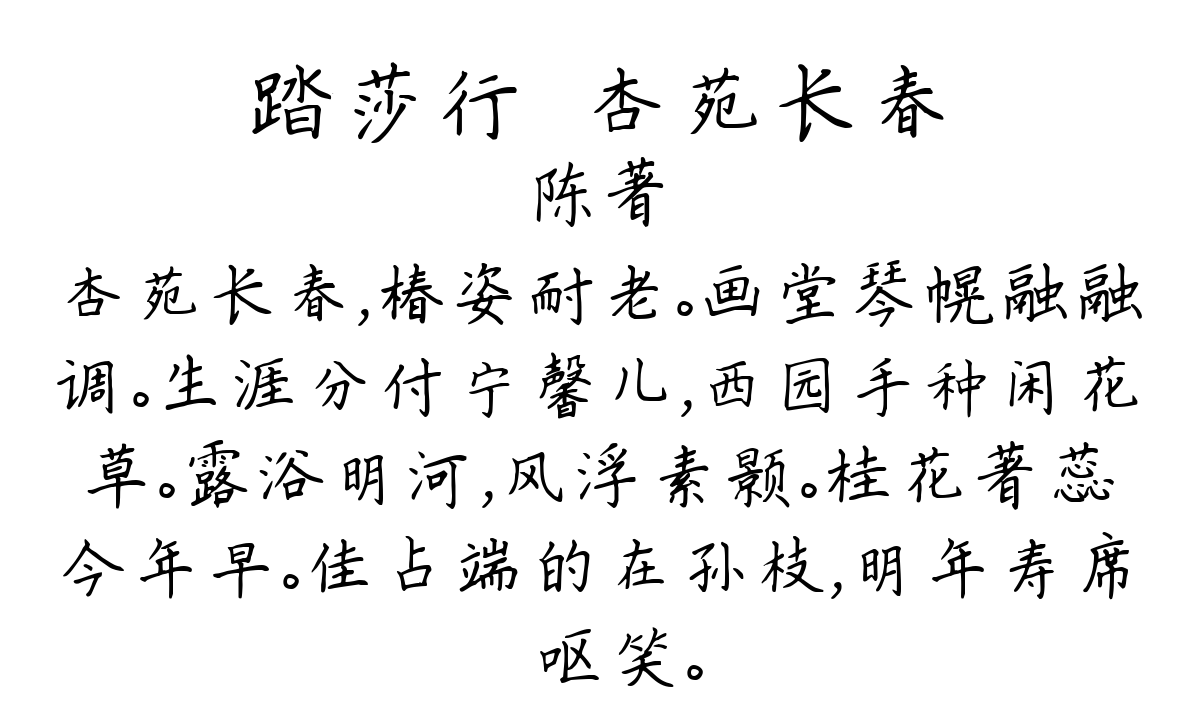 踏莎行 杏苑长春
陈著
杏苑长春,椿姿耐老。画堂琴幌融融
调。生涯分付宁馨儿,西园手种闲花
草。露浴明河,风浮素颢。桂花著蕊
今年早。佳占端的在孙枝,明年寿席
呕笑。